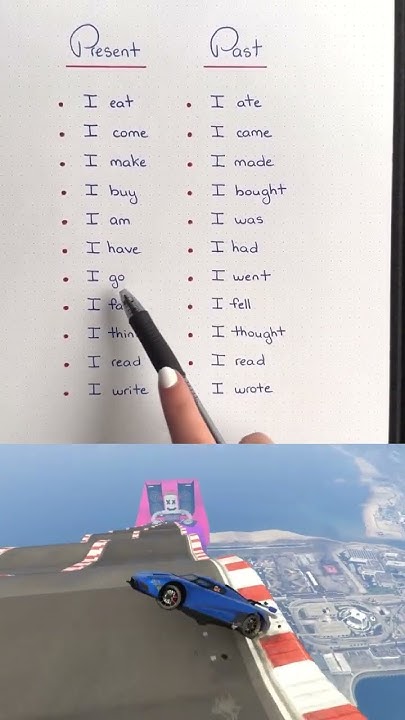 Present Past
I eat I ate
I come I came
I make I made
I buy I bought
I am I was
I have I had
I go I went
I I fell
I I thought
I read I read
I write I wrote